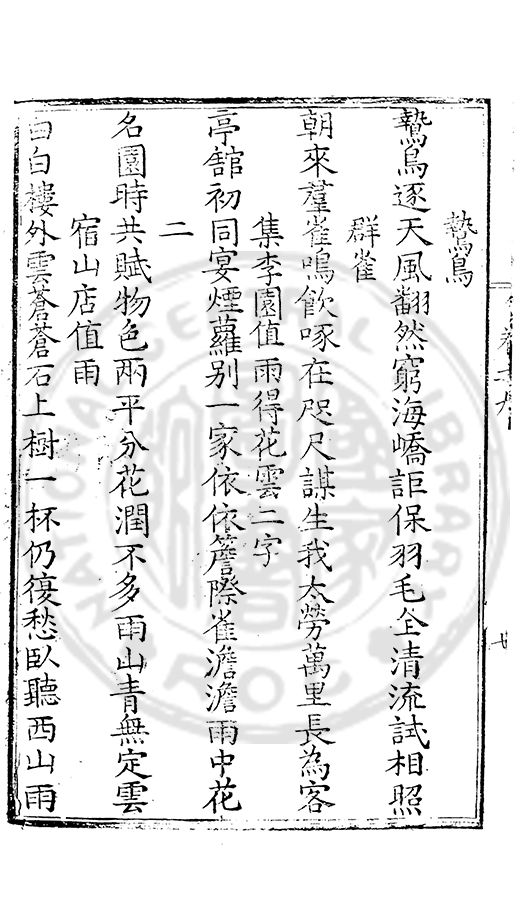 鷙鳥
鷙鳥逐天風翻然窮海嶠詎保羽毛全清流試相照
群雀
朝來羣雀鳴飲啄在咫尺謀生我太勞萬里長為客
集李園值雨得花雲二字
亭舘初同宴煙蘿别一家依依簷際雀澹澹雨中花
二
名園時共賦物色兩平分花潤不多雨山青無定雲
宿山店值雨
白白樓外雲蒼蒼石上樹一杯仍復愁臥聽西山雨
NATIONAL CENTRAL LIBRARY
ROC